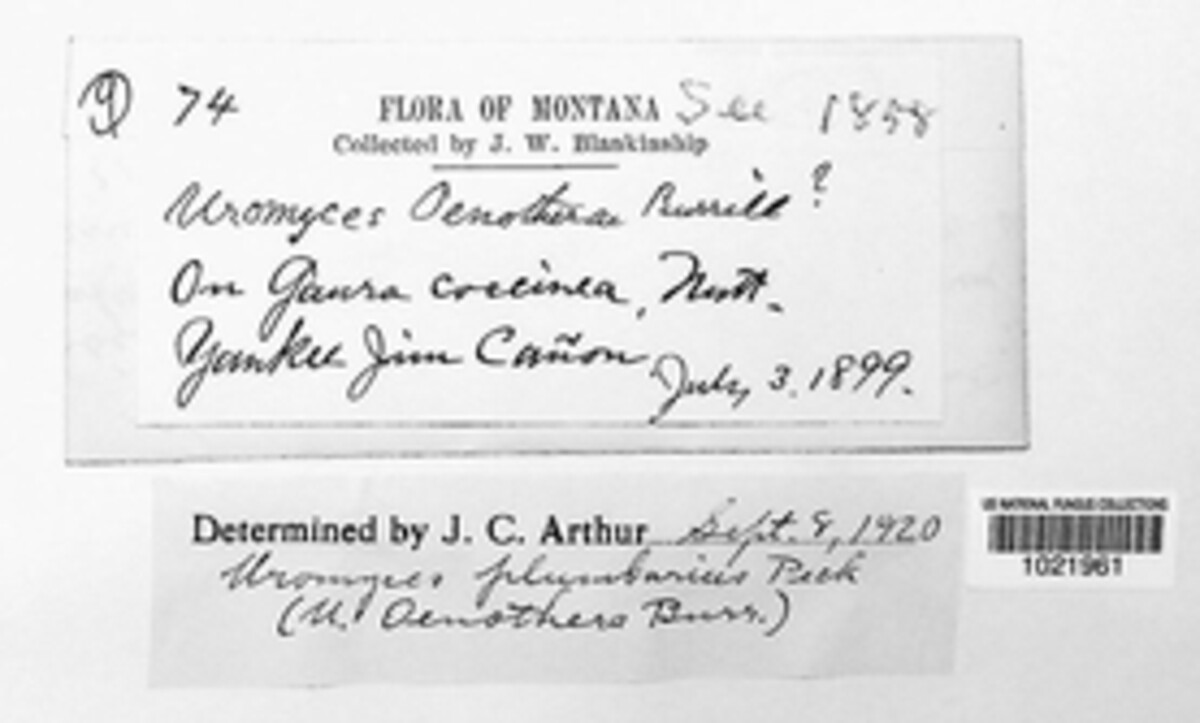 74 FLORA OF MONTANA See
Collected by J. W. Blankinship
Uromyces Oenotherae Burrill ?
On Gaura coccinea, Nutt.
Yankee Jim Cañon
July 3. 1899.
Determined by J. C. Arthur Sept. 8, 1920
Uromyces plumbarius Peck
(U. Oenothera Burr.)
US NATIONAL FUNGUS COLLECTIONS
1021961